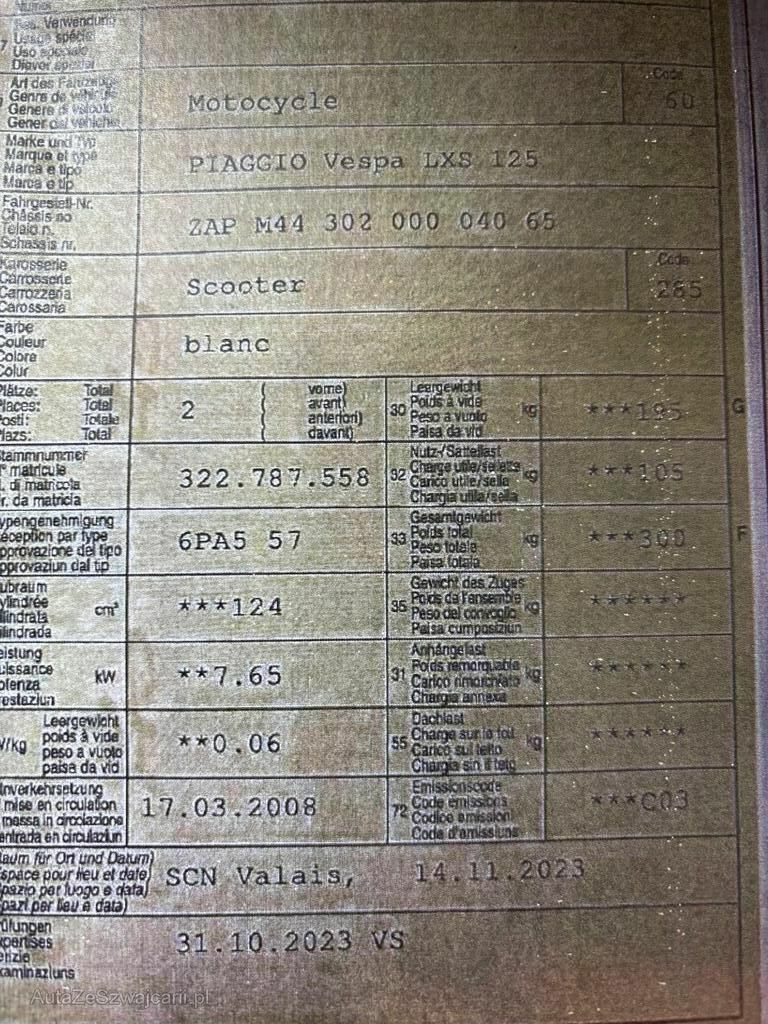 Numer
Bes. Verwendung
7 Usage spécial
Uso speciale
Diever spezial
Art des Fahrzeugs
Genre de véhicule
Genere di veicolo
Gener dal vehichel
Motocycle
Code
60
Marke und Typ
Marque et type
Marca e tipo
Marca e tip
PIAGGIO Vespa LXS 125
Fahrgestell-Nr.
Châssis no
Telaio n.
Schassis nr.
ZAP M44 302 000 040 65
Karosserie
Carrosserie
Carrozzeria
Carossaria
Scooter
Code
285
Farbe
Couleur
Colore
Colur
blanc
lätze: Total
laces: Total
osti: Totale
lazs: Total
2
( vorne)
( avant)
( anteriori)
( davant)
30 Leergewicht
Poids à vide
Peso a vuoto
Paisa da vid
kg
***195
G
tammnummer
° matricule
. di matricola
r. da matricla
322.787.558
32 Nutz-/Sattellast
Charge utile/sellette
Carico utile/sella
Chargia utila/sella
kg
***105
ypengenehmigung
éception par type
pprovazione del tipo
pprovaziun dal tip
6PA5 57
33 Gesamtgewicht
Poids total
Peso totale
Paisa totala
kg
***300
F
ubraum
ylindrée
ilindrata
ilindrada
cm³
***124
35 Gewicht des Zuges
Poids de l'ensemble
Peso del convoglio
Paisa cumposiziun
kg
******
eistung
uissance
otenza
restaziun
kW
**7.65
31 Anhängelast
Poids remorquable
Carico rimorchiato
Chargia annexa
kg
******
W/kg
Leergewicht
poids à vide
peso a vuoto
paisa da vid
**0.06
55 Dachlast
Charge sur le toit
Carico sul tetto
Chargia sin il tetg
kg
******
nverkehrsetzung
mise en circulation
messa in circolazione
entrada en circulaziun
17.03.2008
72 Emissionscode
Code émissions
Codice emissioni
Code d'emissiuns
***C03
aum für Ort und Datum)
space pour lieu et date)
pazio per luogo e data)
pazi per lieu e data)
SCN Valais, 14.11.2023
rüfungen
xpertises
erizie
xaminaziuns
31.10.2023 VS
AutaZeSzwajcarii.pl